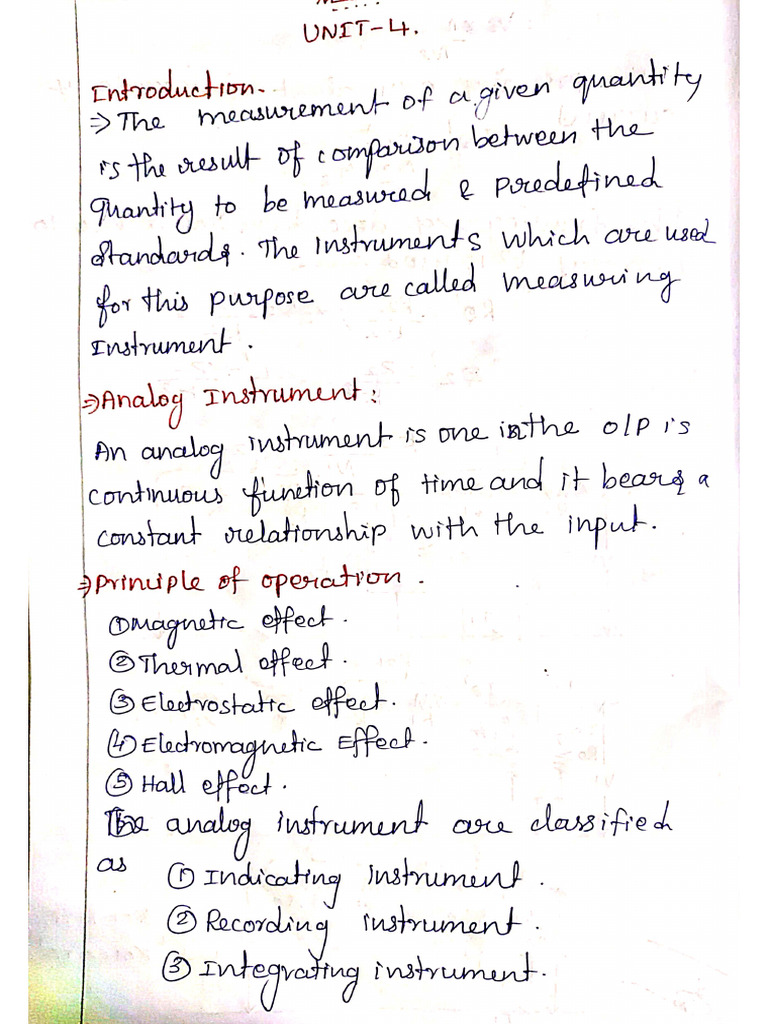 UNIT-4.
Introduction.
⇒ The measurement of a given quantity
is the result of comparison between the
quantity to be measured & Predefined
standards. The Instruments which are used
for this purpose are called measuring
Instrument.
⇒ Analog Instrument:
An analog instrument is one in the O/P is
continuous function of time and it bears a
constant relationship with the input.
⇒ Principle of operation.
① Magnetic effect.
② Thermal effect.
③ Electrostatic effect.
④ Electromagnetic Effect.
⑤ Hall effect.
The analog instrument are classified
as ① Indicating instrument.
② Recording instrument.
③ Integrating instrument.